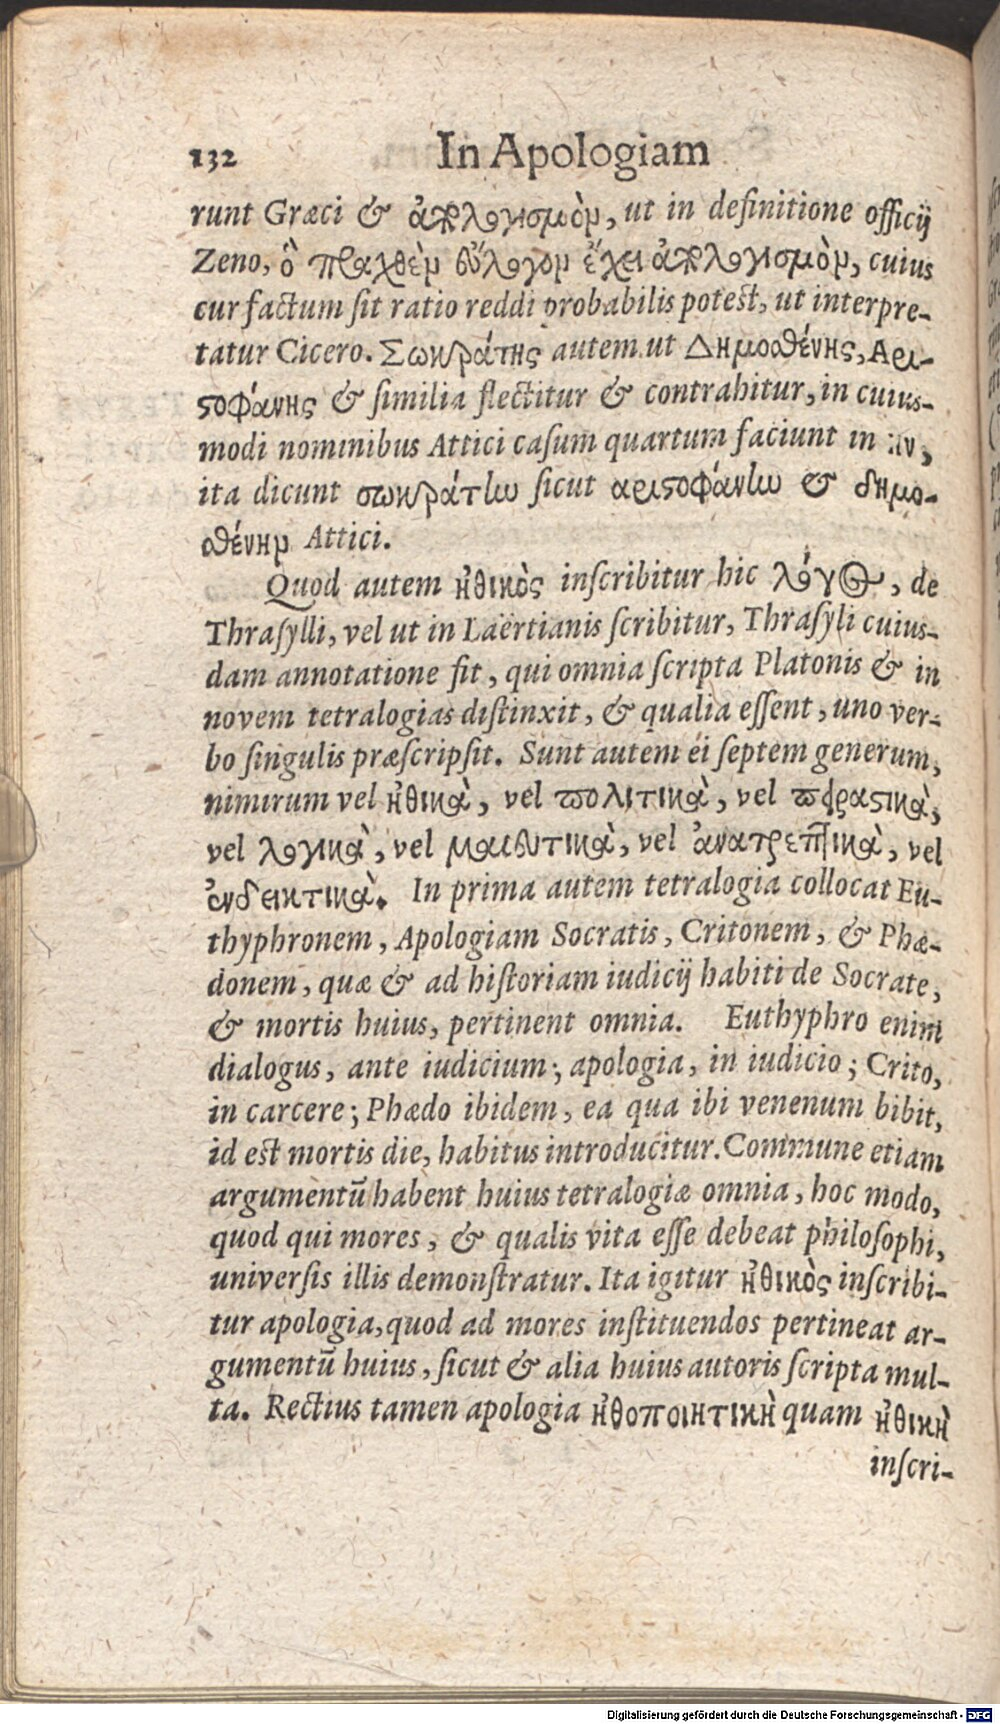 132 In Apologiam
runt Græci & ἀπολογισμὸν, ut in definitione officij
Zeno, ὃ πραχθὲν εὔλογον ἔχει ἀπολογισμὸν, cuius
cur factum sit ratio reddi probabilis potest, ut interpre-
tatur Cicero. Σωκράτης autem ut Δημοσθένης, Αρι-
στοφάνης & similia flectitur & contrahitur, in cuius-
modi nominibus Attici casum quartum faciunt in ην,
ita dicunt σωκράτην sicut αριστοφάνην & δημο-
σθένην Attici.
Quod autem ἠθικὸς inscribitur hic λόγος, de
Thrasylli, vel ut in Laërtianis scribitur, Thrasyli cuius-
dam annotatione fit, qui omnia scripta Platonis & in
novem tetralogias distinxit, & qualia essent, uno ver-
bo singulis præscripsit. Sunt autem ei septem generum,
nimirum vel ἠθικὰ, vel πολιτικὰ, vel πειραστικὰ,
vel λογικὰ, vel μαιευτικὰ, vel ἀνατρεπτικὰ, vel
ἐνδεικτικὰ. In prima autem tetralogia collocat Eu-
thyphronem, Apologiam Socratis, Critonem, & Phæ-
donem, quæ & ad historiam iudicij habiti de Socrate,
& mortis huius, pertinent omnia. Euthyphro enim
dialogus, ante iudicium; apologia, in iudicio; Crito,
in carcere; Phædo ibidem, ea qua ibi venenum bibit,
id est mortis die, habitus introducitur. Commune etiam
argumentū habent huius tetralogiæ omnia, hoc modo,
quod qui mores, & qualis vita esse debeat philosophi,
universis illis demonstratur. Ita igitur ἠθικὸς inscribi-
tur apologia, quod ad mores instituendos pertineat ar-
gumentū huius, sicut & alia huius autoris scripta mul-
ta. Rectius tamen apologia ἠθοποιητικὴ quam ἠθικὴ
inscri-
Digitalisierung gefördert durch die Deutsche Forschungsgemeinschaft - DFG